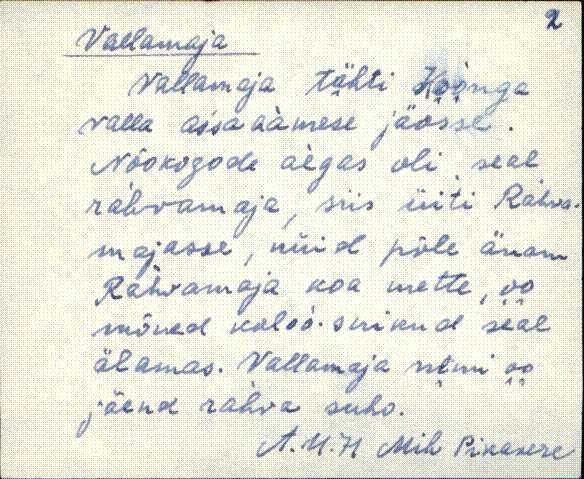 2
Vallamaja
Vallamaja tähti Köönga
valla assaàamese jäösse.
Nõokogode àegas oli seal
ràhvamaja, siis üiti Ràhva-
majasse, nüid põle änam
Ràhvamaja koa mette, oo
mõned koloó. sniknd seal
älamas. Vallamaja nimi oo
jäend ràhva suho.